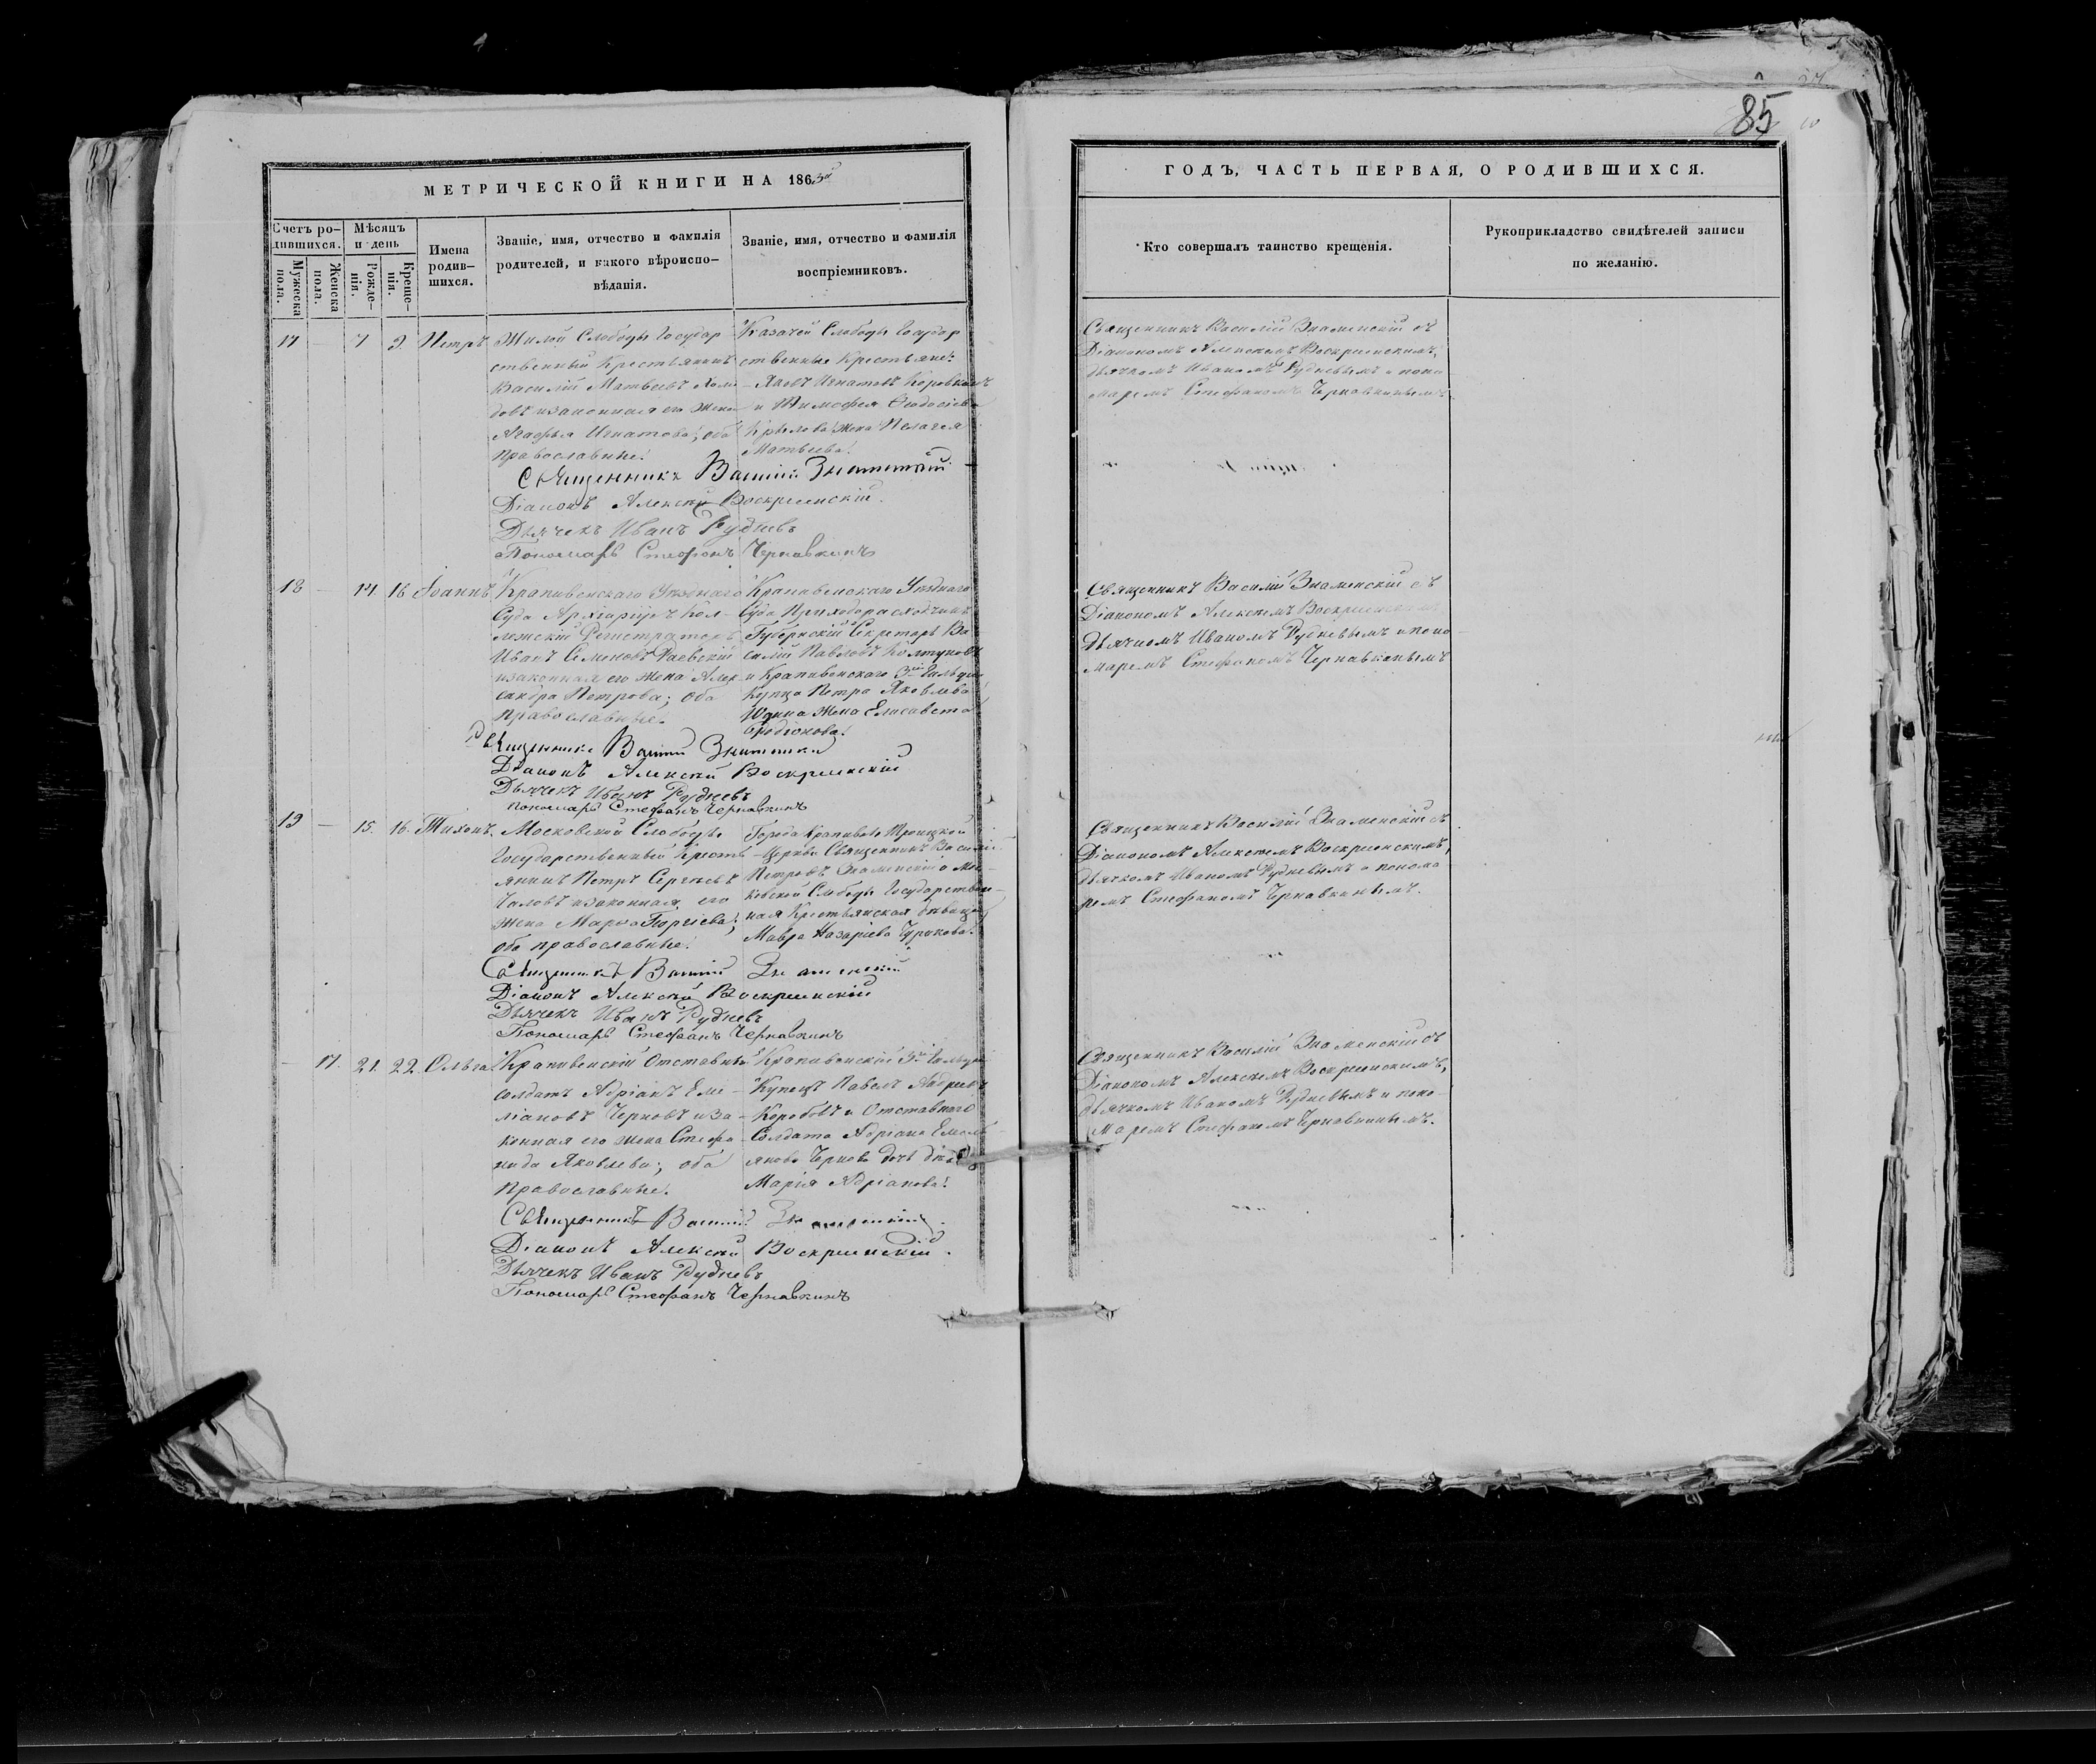 85
МЕТРИЧЕСКОЙ КНИГИ НА 1863й
Счетъ ро-
дившихся.
Мужеска
пола.
Женска
пола.
Мѣсяцъ
и день
Рожде-
нія.
Креще-
нія.
Имена
родив-
шихся.
Званіе, имя, отчество и фамилія
родителей, и какого вѣроиспо-
вѣданія.
Званіе, имя, отчество и фамилія
воспріемниковъ.
17 — 7 9 Петръ
Жилой Слободы Государ
ственный Крестьянинъ
Василій Матвѣевъ
и законная его жена
Агафья Игнатова; оба
православные.
Казачей Слободы Государ
ственные Крестьяне:
Яковъ Игнатовъ
и Тимофея Ѳедосіева
Крылова жена Пелагея
Матвѣева.
Священникъ Василій Знаменскій
Діаконъ Алексѣй Воскресенскій.
Дьячекъ Иванъ Рудневъ
Пономарь Стефанъ Чернавкинъ
18 — 14 16 Іоаннъ
Крапивенскаго Уѣзднаго
Суда Кол-
лежскій Регистраторъ
Иванъ Семеновъ Раевскій
и законная его жена Алек
сандра Петрова; оба
православные.
Крапивенскаго Уѣзднаго
Суда Приходорасходчикъ
Губернскій Секретарь Ва
силій Павловъ Колтуновъ
и Крапивенскаго 3й Гильдіи
Купца Петра Яковлева
Юдина жена Елисавета
Родіонова.
Священникъ Василій Знаменскій
Діаконъ Алексѣй Воскресенскій
Дьячекъ Иванъ Рудневъ
Пономарь Стефанъ Чернавкинъ
19 — 15. 16. Тихонъ.
Московской Слободы
Государственный Кресть
янинъ Петръ Сергѣевъ
и законная его
жена Марѳа Георгіева;
оба православные.
Города Крапивны Троицкой
Церкви Священникъ Василій
Петровъ Знаменскій и Мос
ковской Слободы Государствен-
ная Крестьянская дѣвица
Мавра Назаріева Чурикова.
Священникъ Василій Знаменскій
Діаконъ Алексѣй Воскресенскій
Дьячекъ Иванъ Рудневъ
Пономарь Стефанъ Чернавкинъ
— 17. 21. 22. Ольга
Крапивенскій Отставный
Солдатъ Адріанъ Еме-
ліановъ Черновъ и за-
конная его жена Стефа-
нида Яковлева; оба
Православные.
Крапивенскій 3й Гильдіи
Купецъ Павелъ Андреевъ
Коробовъ и Отставнаго
Солдата Адріана Емель
янова Чернова дочь дѣвица
Марія Адріанова.
Священникъ Василій Знаменскій.
Діаконъ Алексѣй Воскресенскій.
Дьячекъ Иванъ Рудневъ
Пономарь Стефанъ Чернавкинъ
ГОДЪ, ЧАСТЬ ПЕРВАЯ, О РОДИВШИХСЯ.
Кто совершалъ таинство крещенія.
Рукоприкладство свидѣтелей записи
по желанію.
Священникъ Василій Знаменскій съ
Діакономъ Алексѣемъ Воскресенскимъ,
дьячкомъ Иваномъ Рудневымъ и поно
маремъ Стефаномъ Чернавкинымъ.
Священникъ Василій Знаменскій съ
Діакономъ Алексѣемъ Воскресенскимъ
дьячкомъ Иваномъ Рудневымъ и поно-
маремъ Стефаномъ Чернавкинымъ
Священникъ Василій Знаменскій съ
Діакономъ Алексѣемъ Воскресенскимъ,
дьячкомъ Иваномъ Рудневымъ и понома
ремъ Стефаномъ Чернавкинымъ.
Священникъ Василій Знаменскій съ
Діакономъ Алексѣемъ Воскресенскимъ,
дьячкомъ Иваномъ Рудневымъ и поно-
маремъ Стефаномъ Чернавкинымъ.